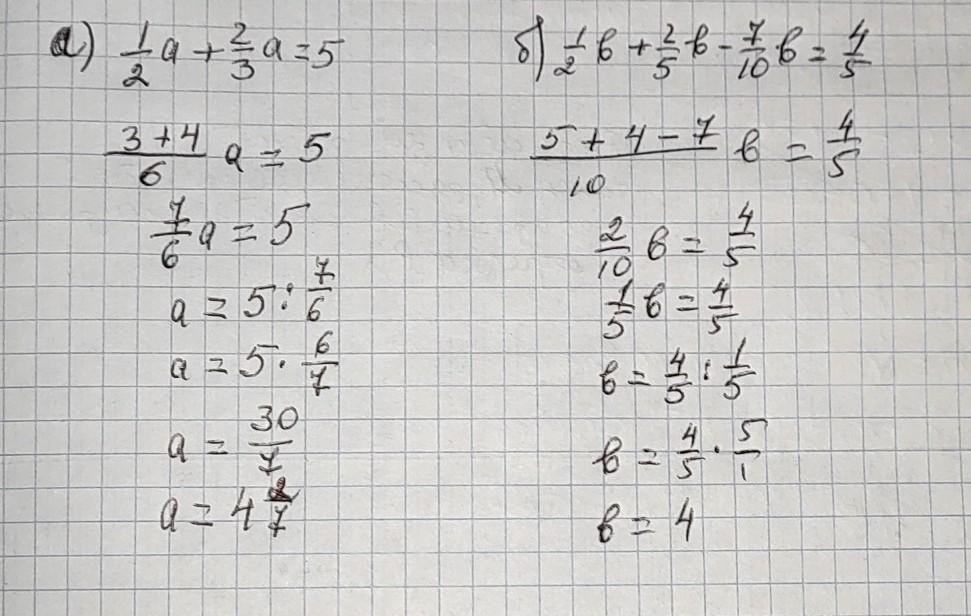 а) 1/2 a + 2/3 a = 5
(3+4)/6 a = 5
7/6 a = 5
a = 5 : 7/6
a = 5 · 6/7
a = 30/7
a = 4 2/7
б) 1/2 в + 2/5 в - 7/10 в = 4/5
(5+4-7)/10 в = 4/5
2/10 в = 4/5
1/5 в = 4/5
в = 4/5 : 1/5
в = 4/5 · 5/1
в = 4